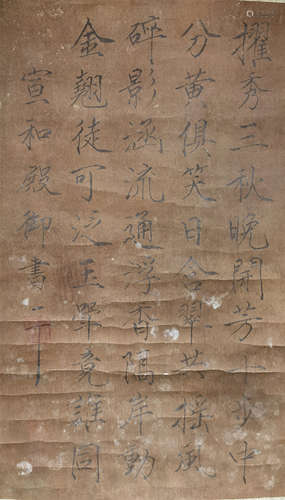 擢秀三秋晚開芳十步中
分黃俱笑日含翠共搖風
碎影涵流通浮香隔岸動
金翹徒可泛玉斝竟誰同
宣和殿御書